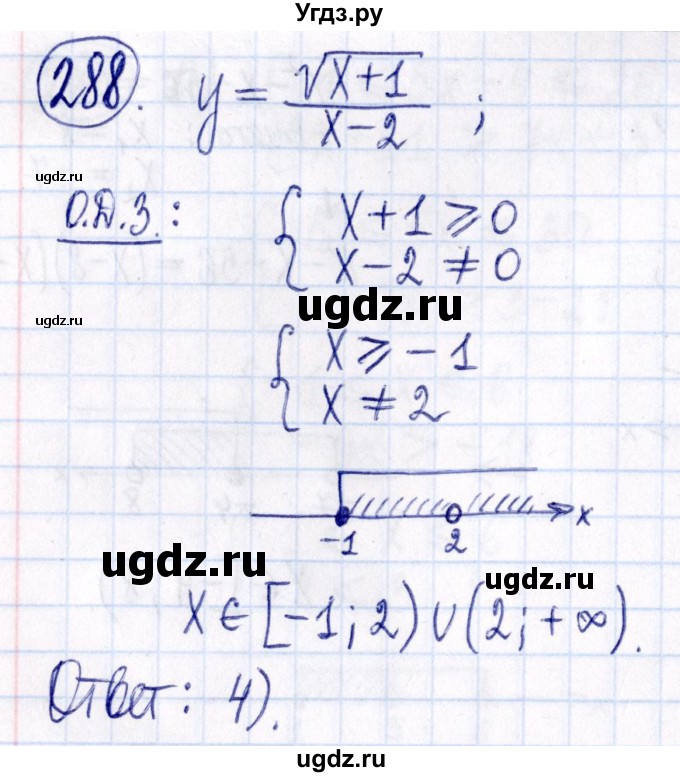 Угдз.ру
288. y = √(x+1)/(x-2) ;
ugdz.ru
О.Д.З.: { x+1 ⩾ 0
x-2 ≠ 0
ugdz.ru
ugdz.ru
{ x ⩾ -1
x ≠ 2
-1 2 x
ugdz.ru
ugdz.ru
x ∈ [-1; 2) ∪ (2; +∞).
Ответ: 4).
ugdz.ru
ugdz.ru